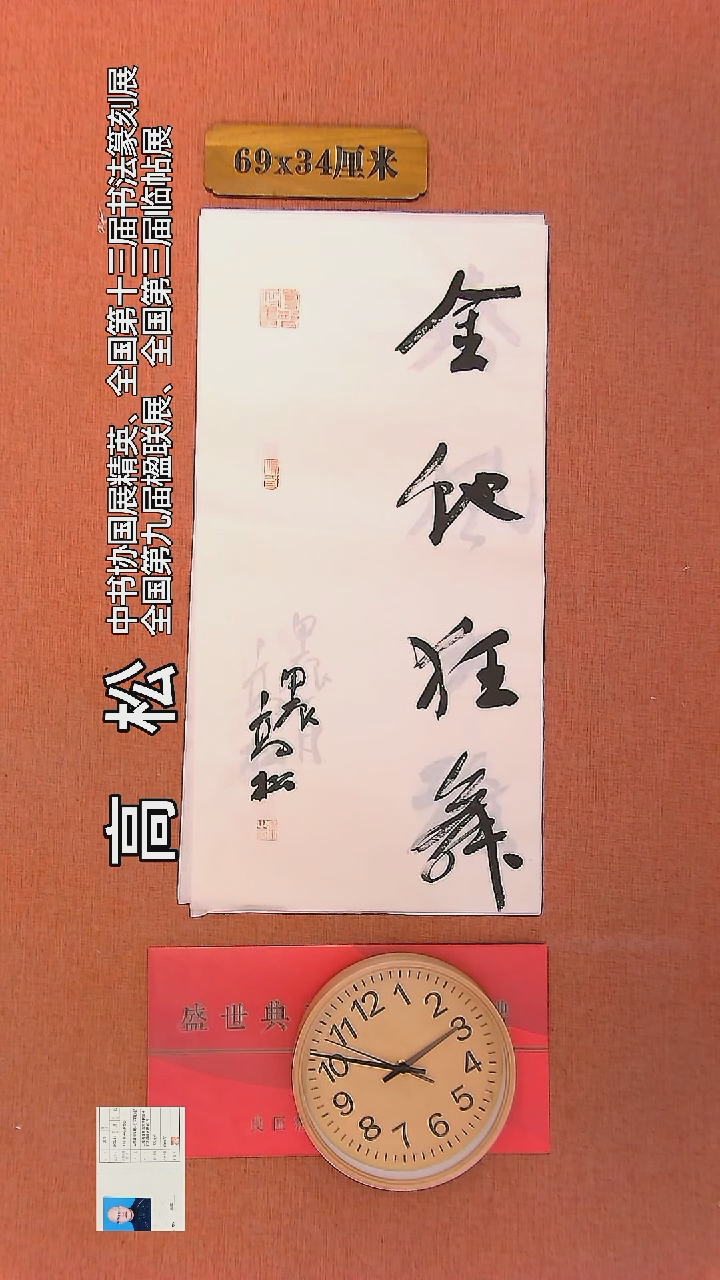 69x34厘米
中书协国展精英、全国第十三届书法篆刻展
全国第九届楹联展、全国第三届临帖展
高 松
金蛇狂舞
甲辰
高松
盛世典
12
1
2
3
4
5
6
7
8
9
10
11